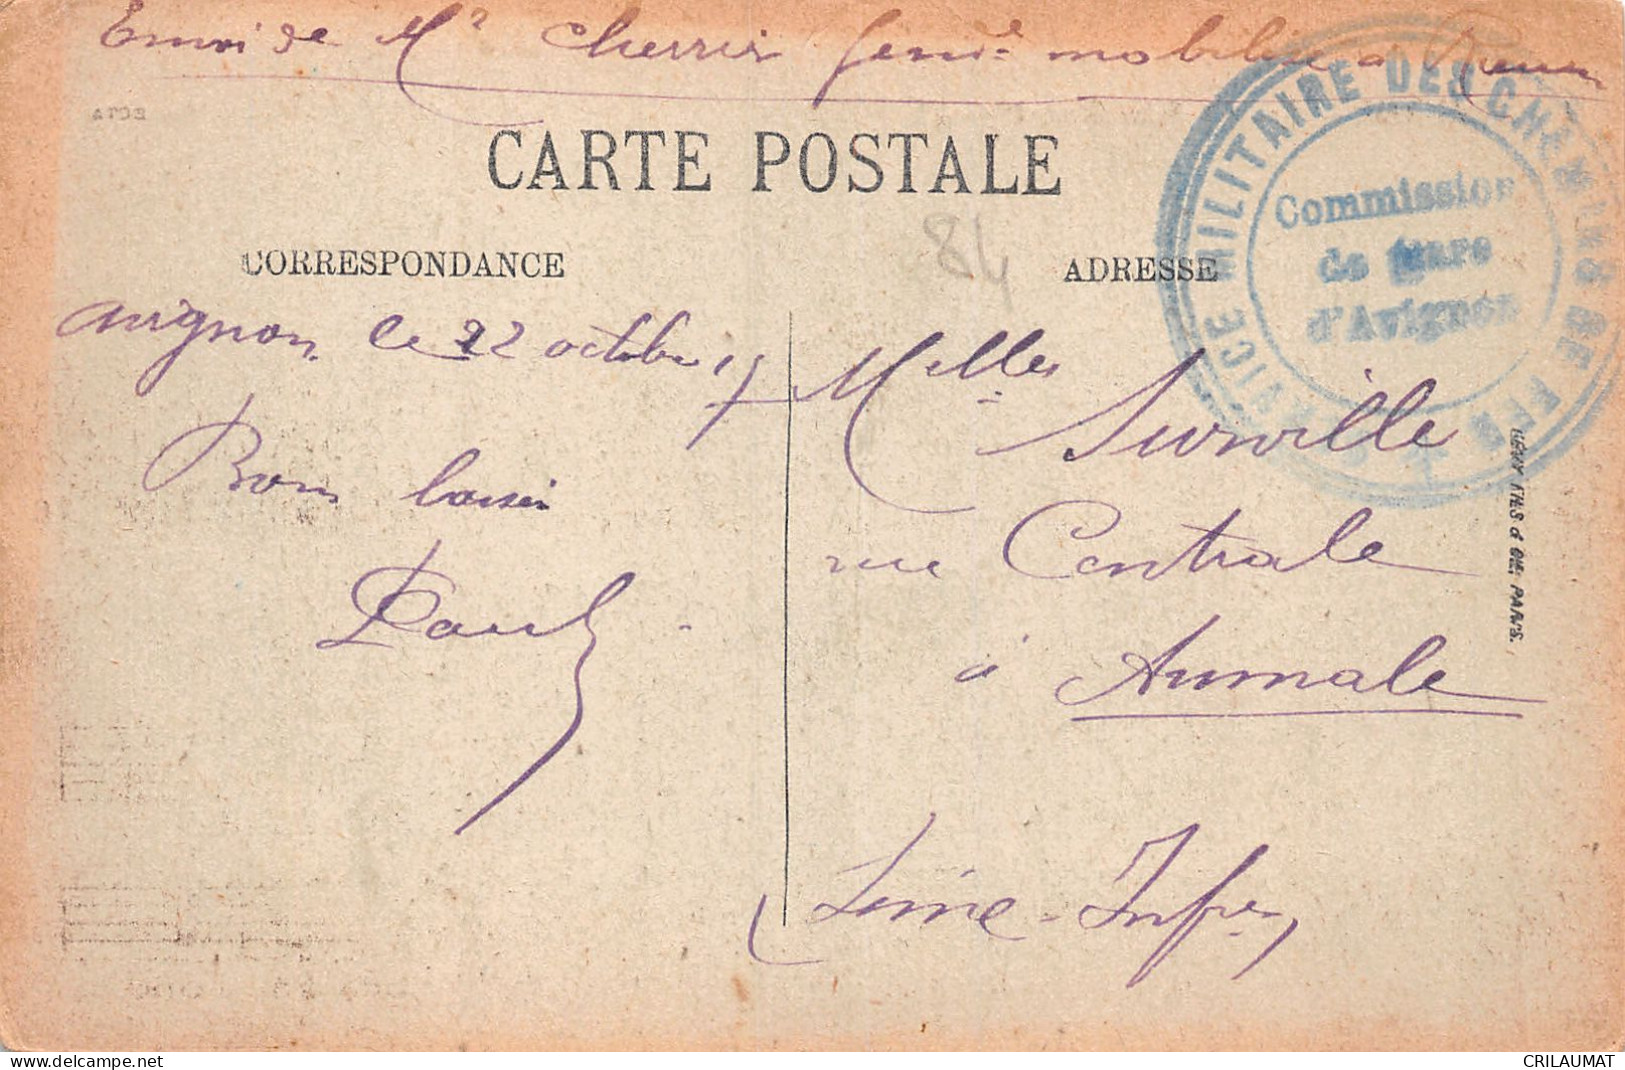 Envoi de Mr Cherrier gend. mobilisé à Rouen
CARTE POSTALE
CORRESPONDANCE
ADRESSE
84
SERVICE MILITAIRE DES CHEMINS DE FER
Commission
de gare
d'Avignon
Avignon le 22 octobre 15
Bons baisers
Paul
Melles Surville
rue Centrale
à Aumale
(Seine-Infre)
LÉVY FILS & CIE, PARIS.
© www.delcampe.net
CRILAUMAT